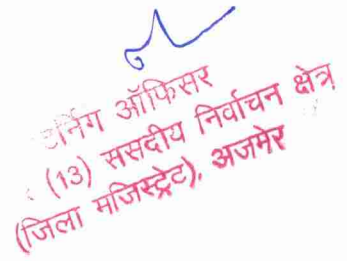 टर्निंग ऑफिसर
(13) ससदीय निर्वाचन क्षेत्र
(जिला मजिस्ट्रेट), अजमेर